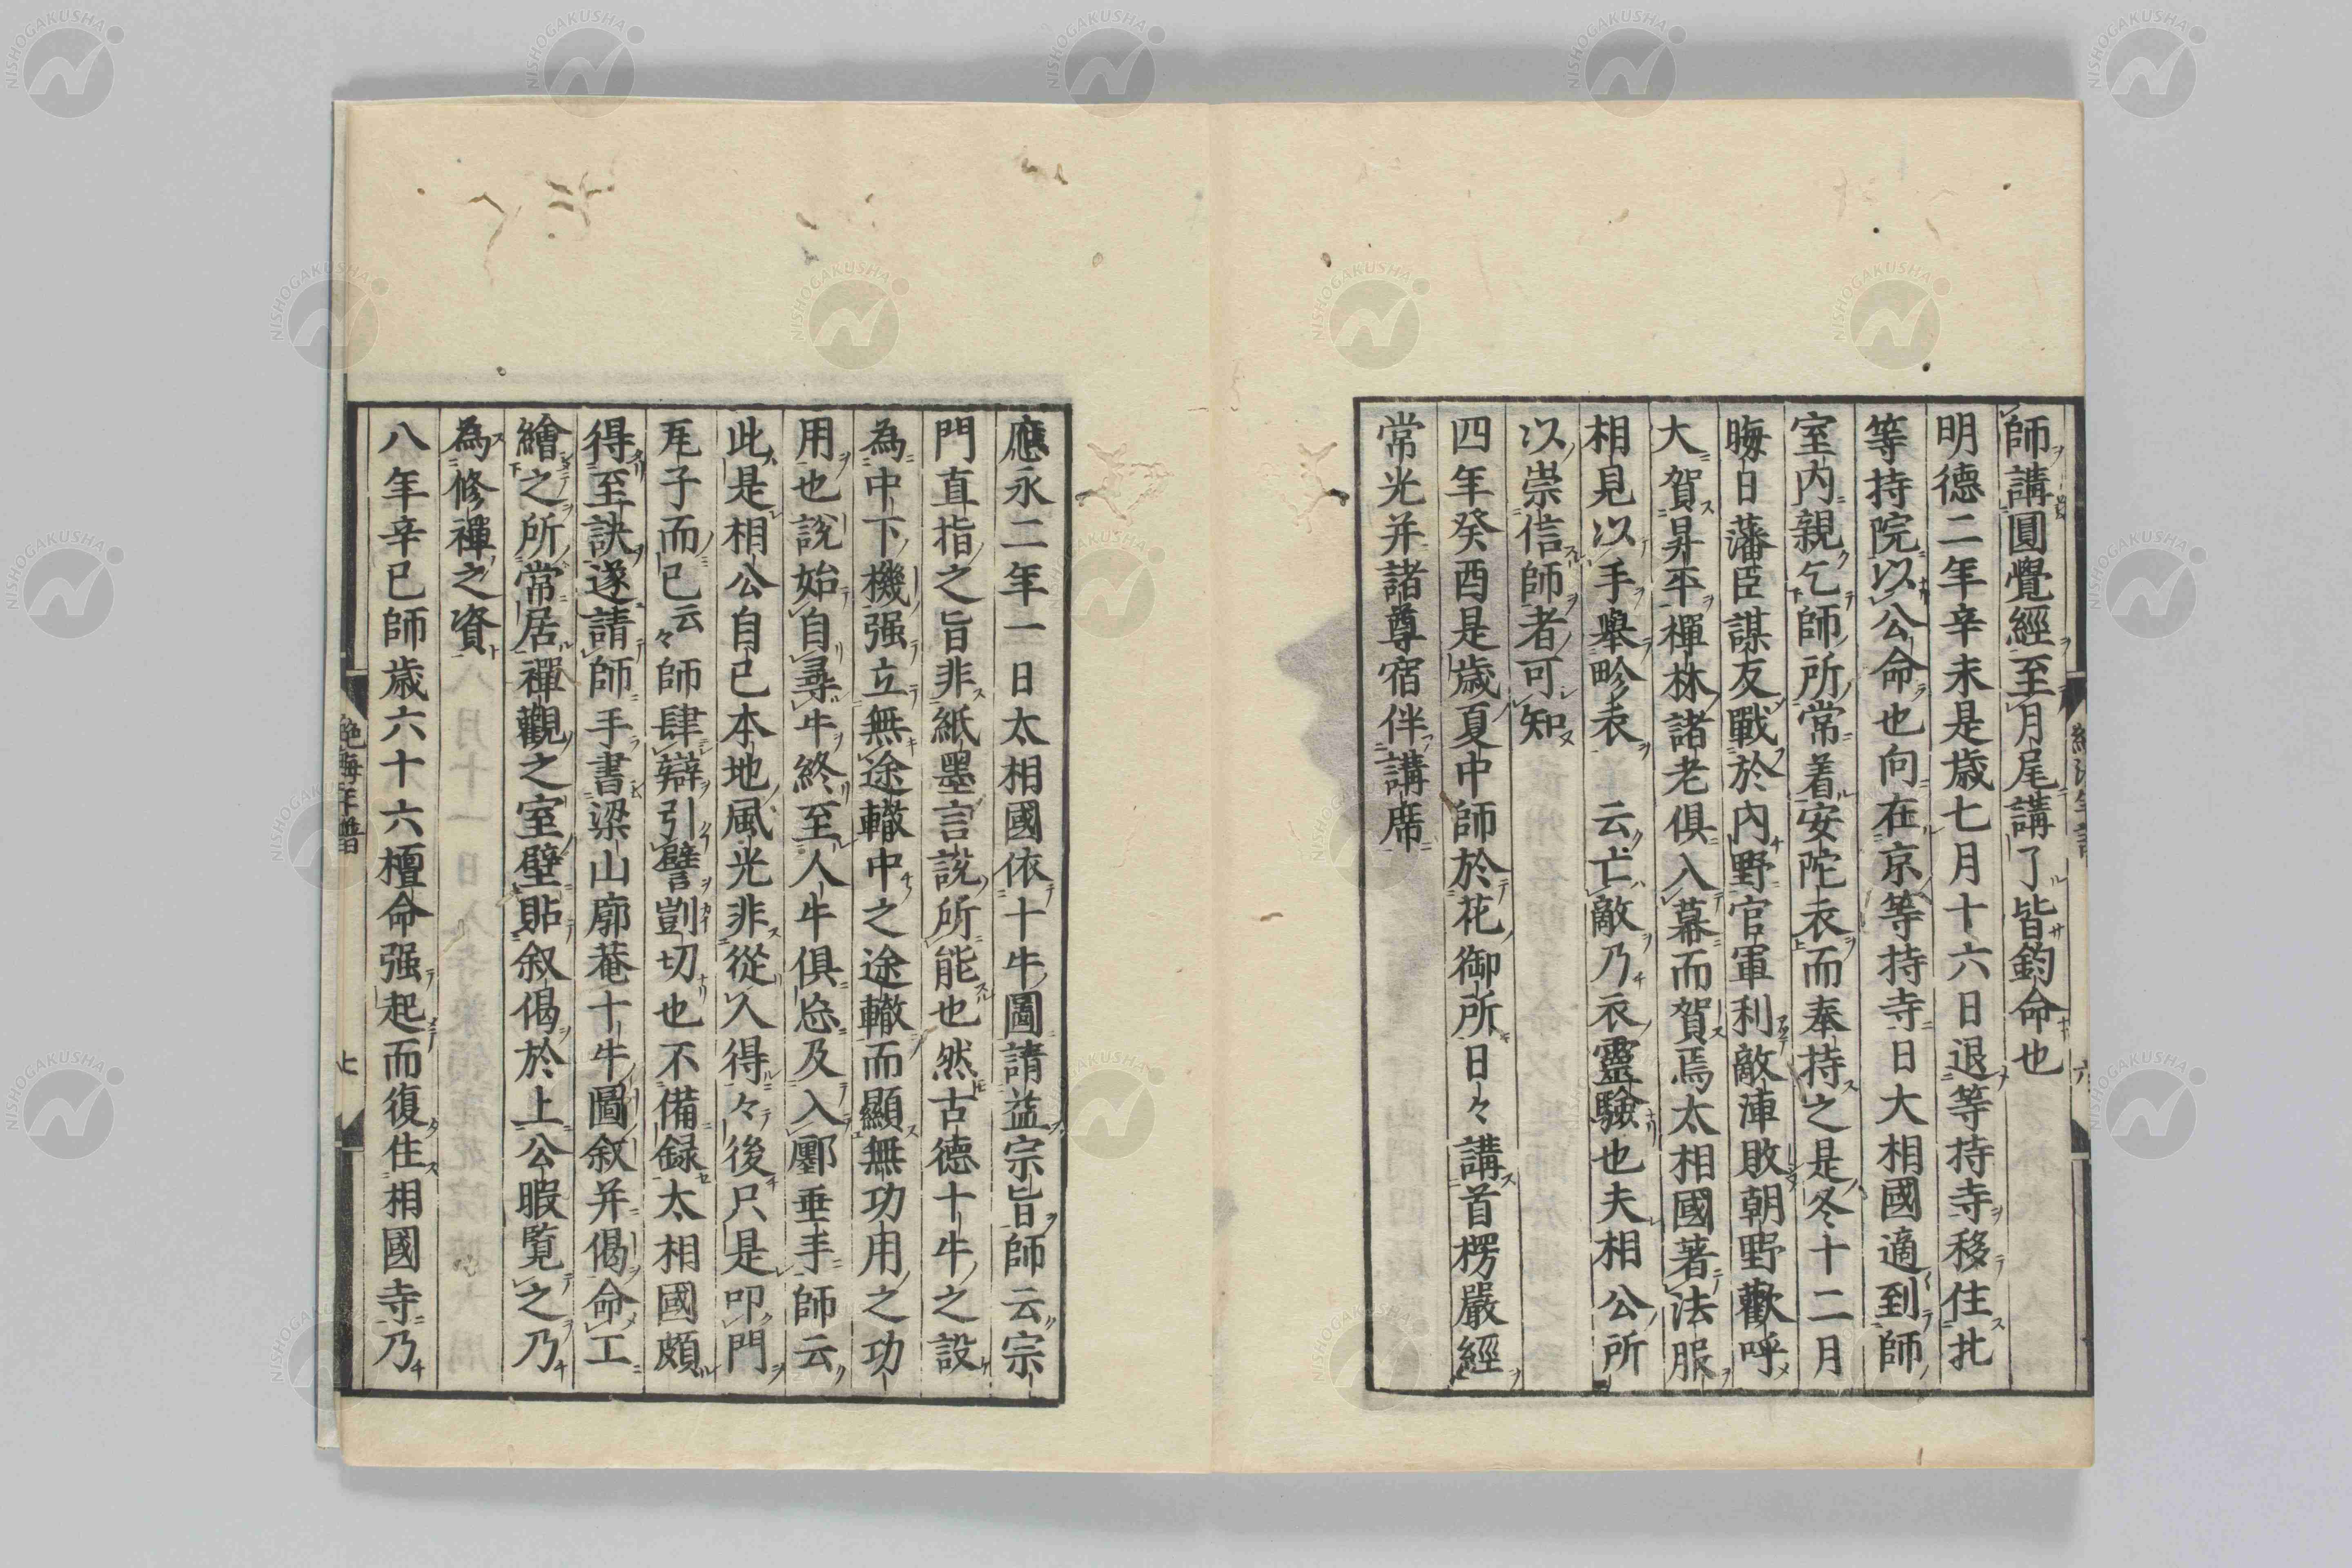 師講圓覺經至月尾講了皆鈞命也
明德二年辛未是歲七月十六日退等持寺移住北
等持院以公命也向在京等持寺日大相國適到師
室内親乞師所常着安陀衣而奉持之是冬十二月
晦日藩臣謀友戰於内野官軍利敵陣敗朝野歡呼
大賀昇平禪林諸老俱入幕而賀焉太相國著法服
相見以手舉畛衣云亡敵乃衣靈驗也夫相公所
以崇信師者可知
四年癸酉是歲夏中師於花御所日々講首楞嚴經
常光并諸尊宿伴講席
應永二年一日太相國依十牛圖請益宗旨師云宗
門直指之旨非紙墨言說所能也然古德十牛之設
為中下機强立無途轍中之途轍而顯無功用之功
用也說始自尋牛終至人牛俱忘及入鄽垂手師云
此是相公自己本地風光非從人得得々後只是叩門
瓦子而已云々師肆辯引譬剴切也不備録太相國頗
得至訣遂請師手書梁山廓菴十牛圖敘并偈命工
繪之所常居禪觀之室壁貼叙偈於上公暇覧之乃
為修禪之資
八年辛巳師歲六十六檀命强起而復住相國寺乃
絶海年譜
六
七
NISHOGAKUSHA